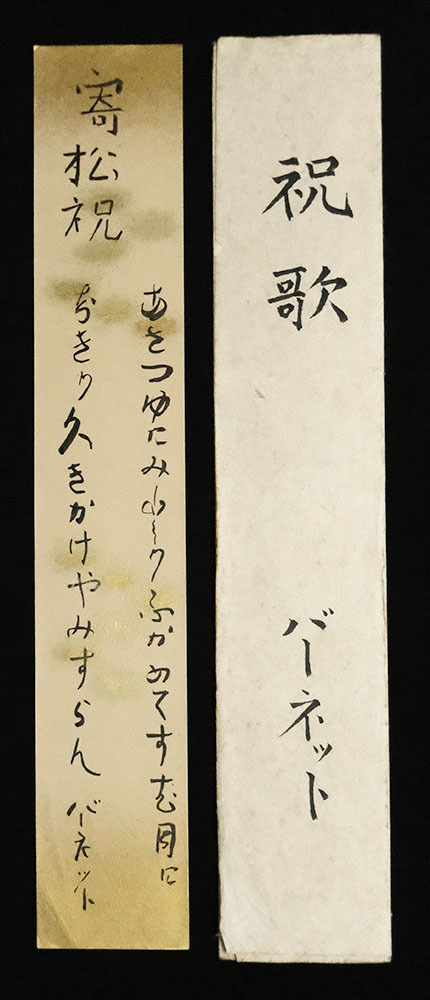 祝歌
バーネット
寄松祝
あさつゆにみどりふかめてすむ月に
ちきり久きかけやみすらん
バーネット